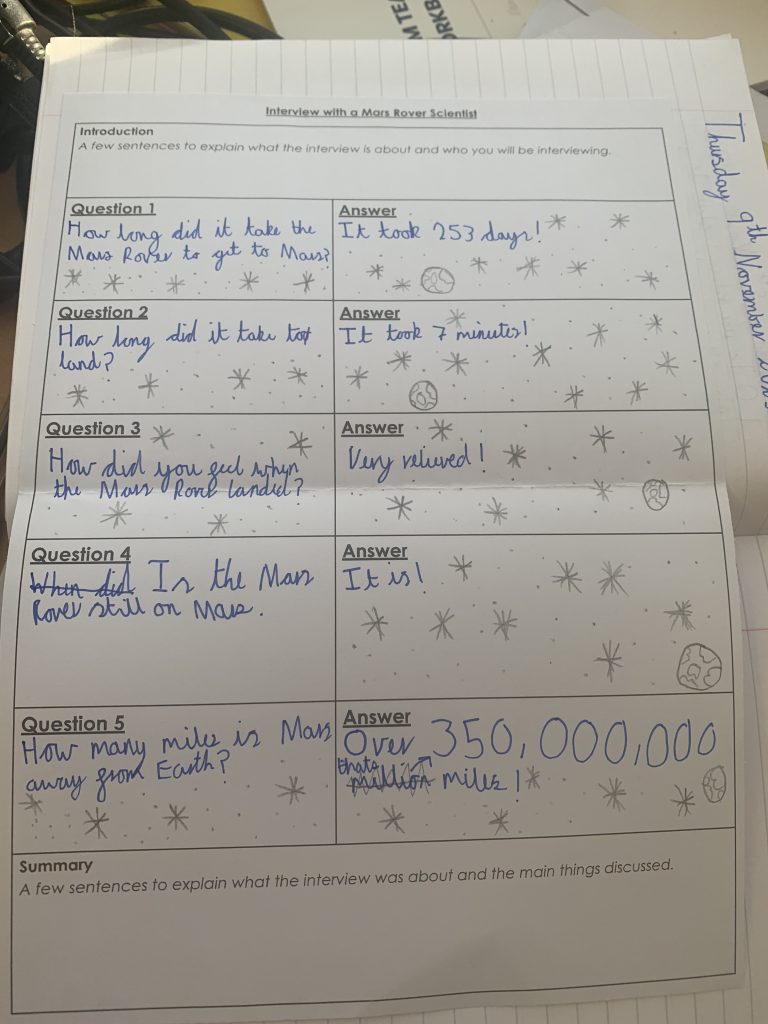 Interview with a Mars Rover Scientist
Introduction
A few sentences to explain what the interview is about and who you will be interviewing.
Question 1
How long did it take the
Mars Rover to get to Mars?
Answer
It took 253 days!
Question 2
How long did it take to
land?
Answer
It took 7 minutes!
Question 3
How did you feel when
the Mars Rover landed?
Answer
Very relieved!
Question 4
When did Is the Mars
Rover still on Mars.
Answer
It is!
Question 5
How many miles is Mars
away from Earth?
Answer
Over 350,000,000
thats
million miles!
Summary
A few sentences to explain what the interview was about and the main things discussed.
Thursday 9th November